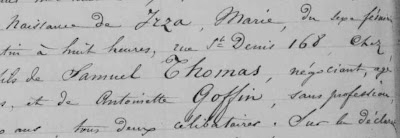 Naissance de Izza, Marie, du sexe fémin
tin à huit heures, rue St Denis 168, Chez
fils de Samuel Thomas, négociant, agé
s, et de Antoinette Goffin, sans profession,
aux tous deux célibataires. Sur la déclara